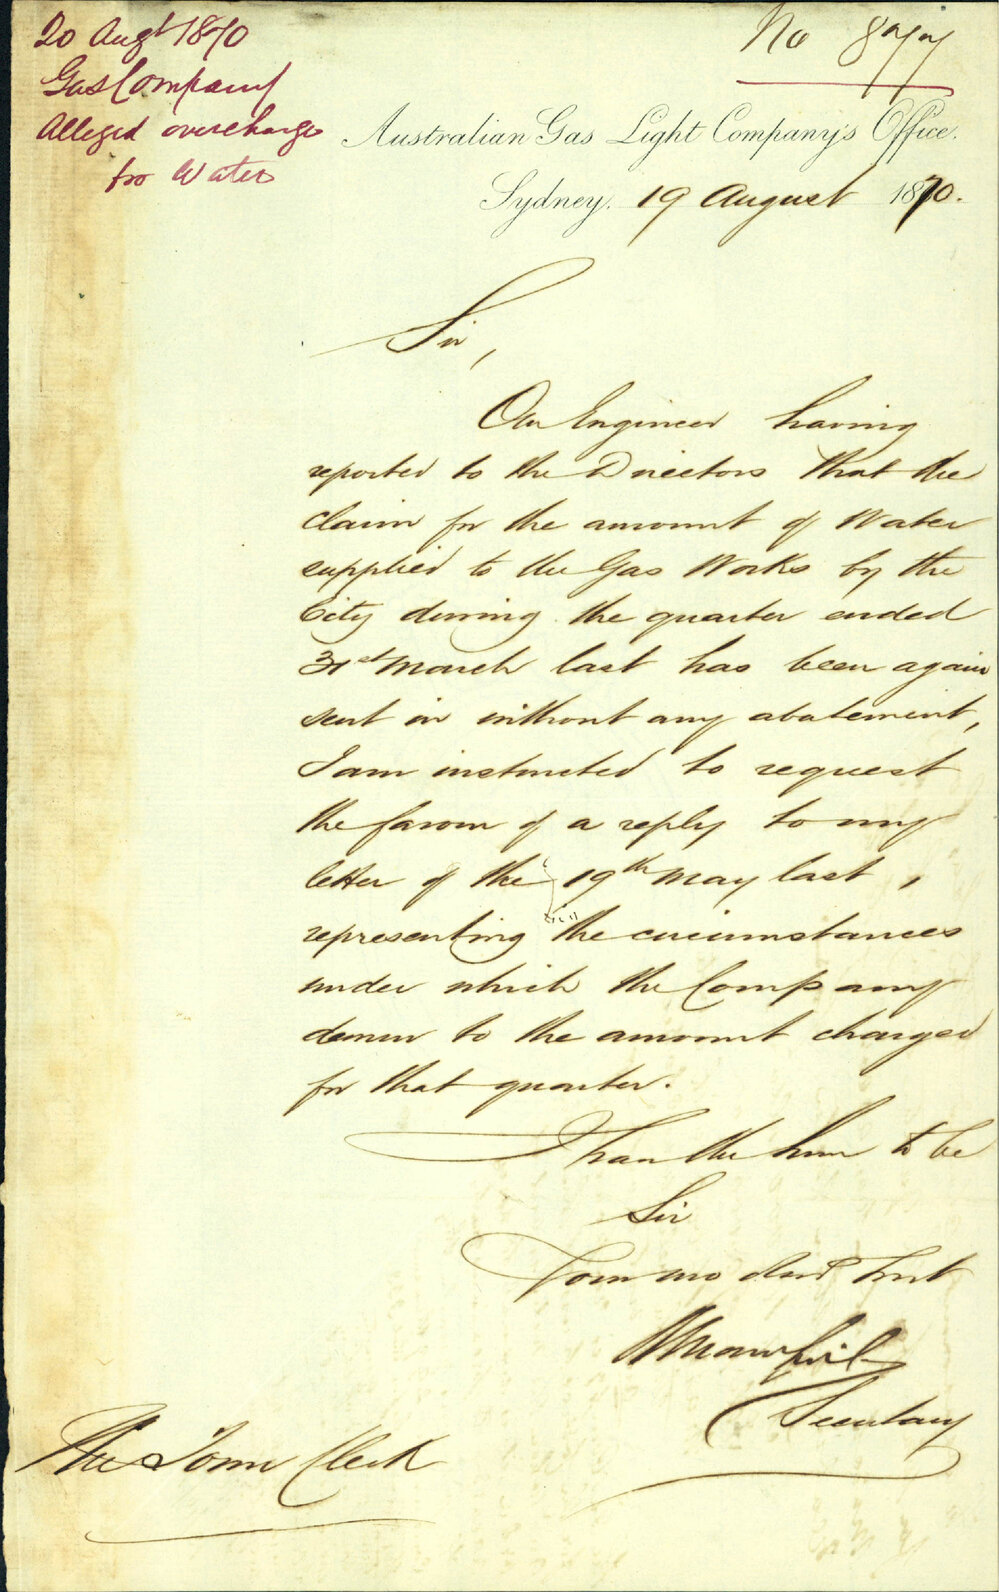 20 Augt 1870
Gas Company
Alleged overcharge
for Water
No 877
Australian Gas Light Company's Office.
Sydney. 19 August 1870.
Sir,
Our Engineer having
reported to the Directors that the
claim for the amount of Water
supplied to the Gas Works by the
City during the quarter ended
31st March last has been again
sent in without any abatement,
I am instructed to request
the favour of a reply to my
letter of the 19th May last,
representing the circumstances
under which the Company
demur to the amount charged
for that quarter.
I have the honr to be
Sir
Your mo obedt Servt
Secretary
The Town Clerk